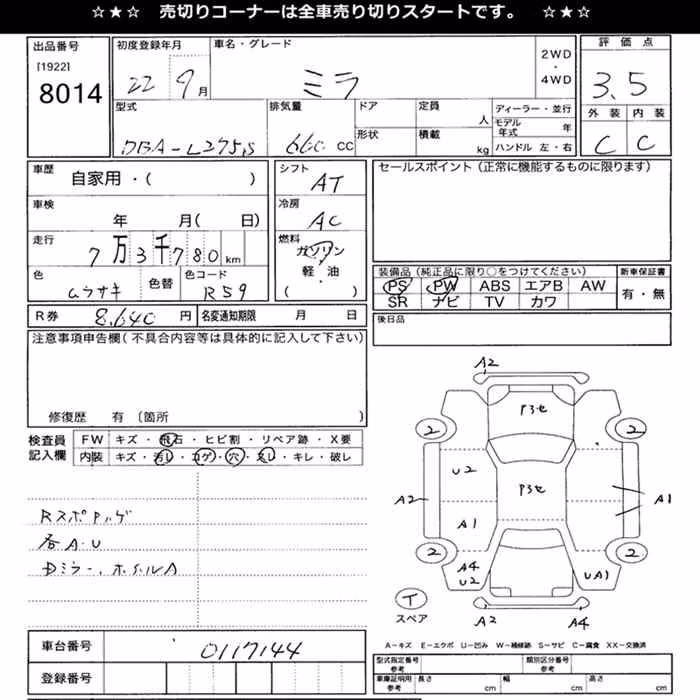 ☆★☆ 売切りコーナーは全車売り切りスタートです。 ☆★☆
出品番号 初度登録年月 車名・グレード 2WD・4WD 評価点
[1922]
8014 22 9月 ミラ 3.5
型式 排気量 ドア 定員 人 ディーラー・並行 外装 内装
モデル年式 年
DBA-L275S 660 CC 形状 積載 kg ハンドル 左・右 C C
車歴 自家用・( ) シフト AT セールスポイント(正常に機能するものに限ります)
車検 年 月( 日) 冷房 AC
走行 7万3千780km 燃料 ガソリン
軽・油
( )
色 ムラサキ 色替 色コード R59
装備品(純正品に限り○をつけてください) 新車保証書
PS PW ABS エアB AW 有・無
SR ナビ TV カワ
R券 8,640円 名変通知期限 月 日 後日品
注意事項申告欄(不具合内容等は具体的に記入して下さい)
修復歴 有〔箇所 〕
検査員記入欄 FW キズ・飛石・ヒビ割・リペア跡・X要
内装 キズ・汚レ・コゲ・穴・スレ・キレ・破レ
各A・U
A2
P3セ
2 2
U2 P3セ
A2 A1
A1
2 2
A4 U2 UA1
T
スペア A2 A4
A-キズ E-エクボ U-凹み W-補修跡 S-サビ C-腐食 XX-交換済
車台番号 0117144
登録番号
型式指定番号参考 類別区分番号参考
車庫証明用参考 長さ cm 幅 cm 高さ cm